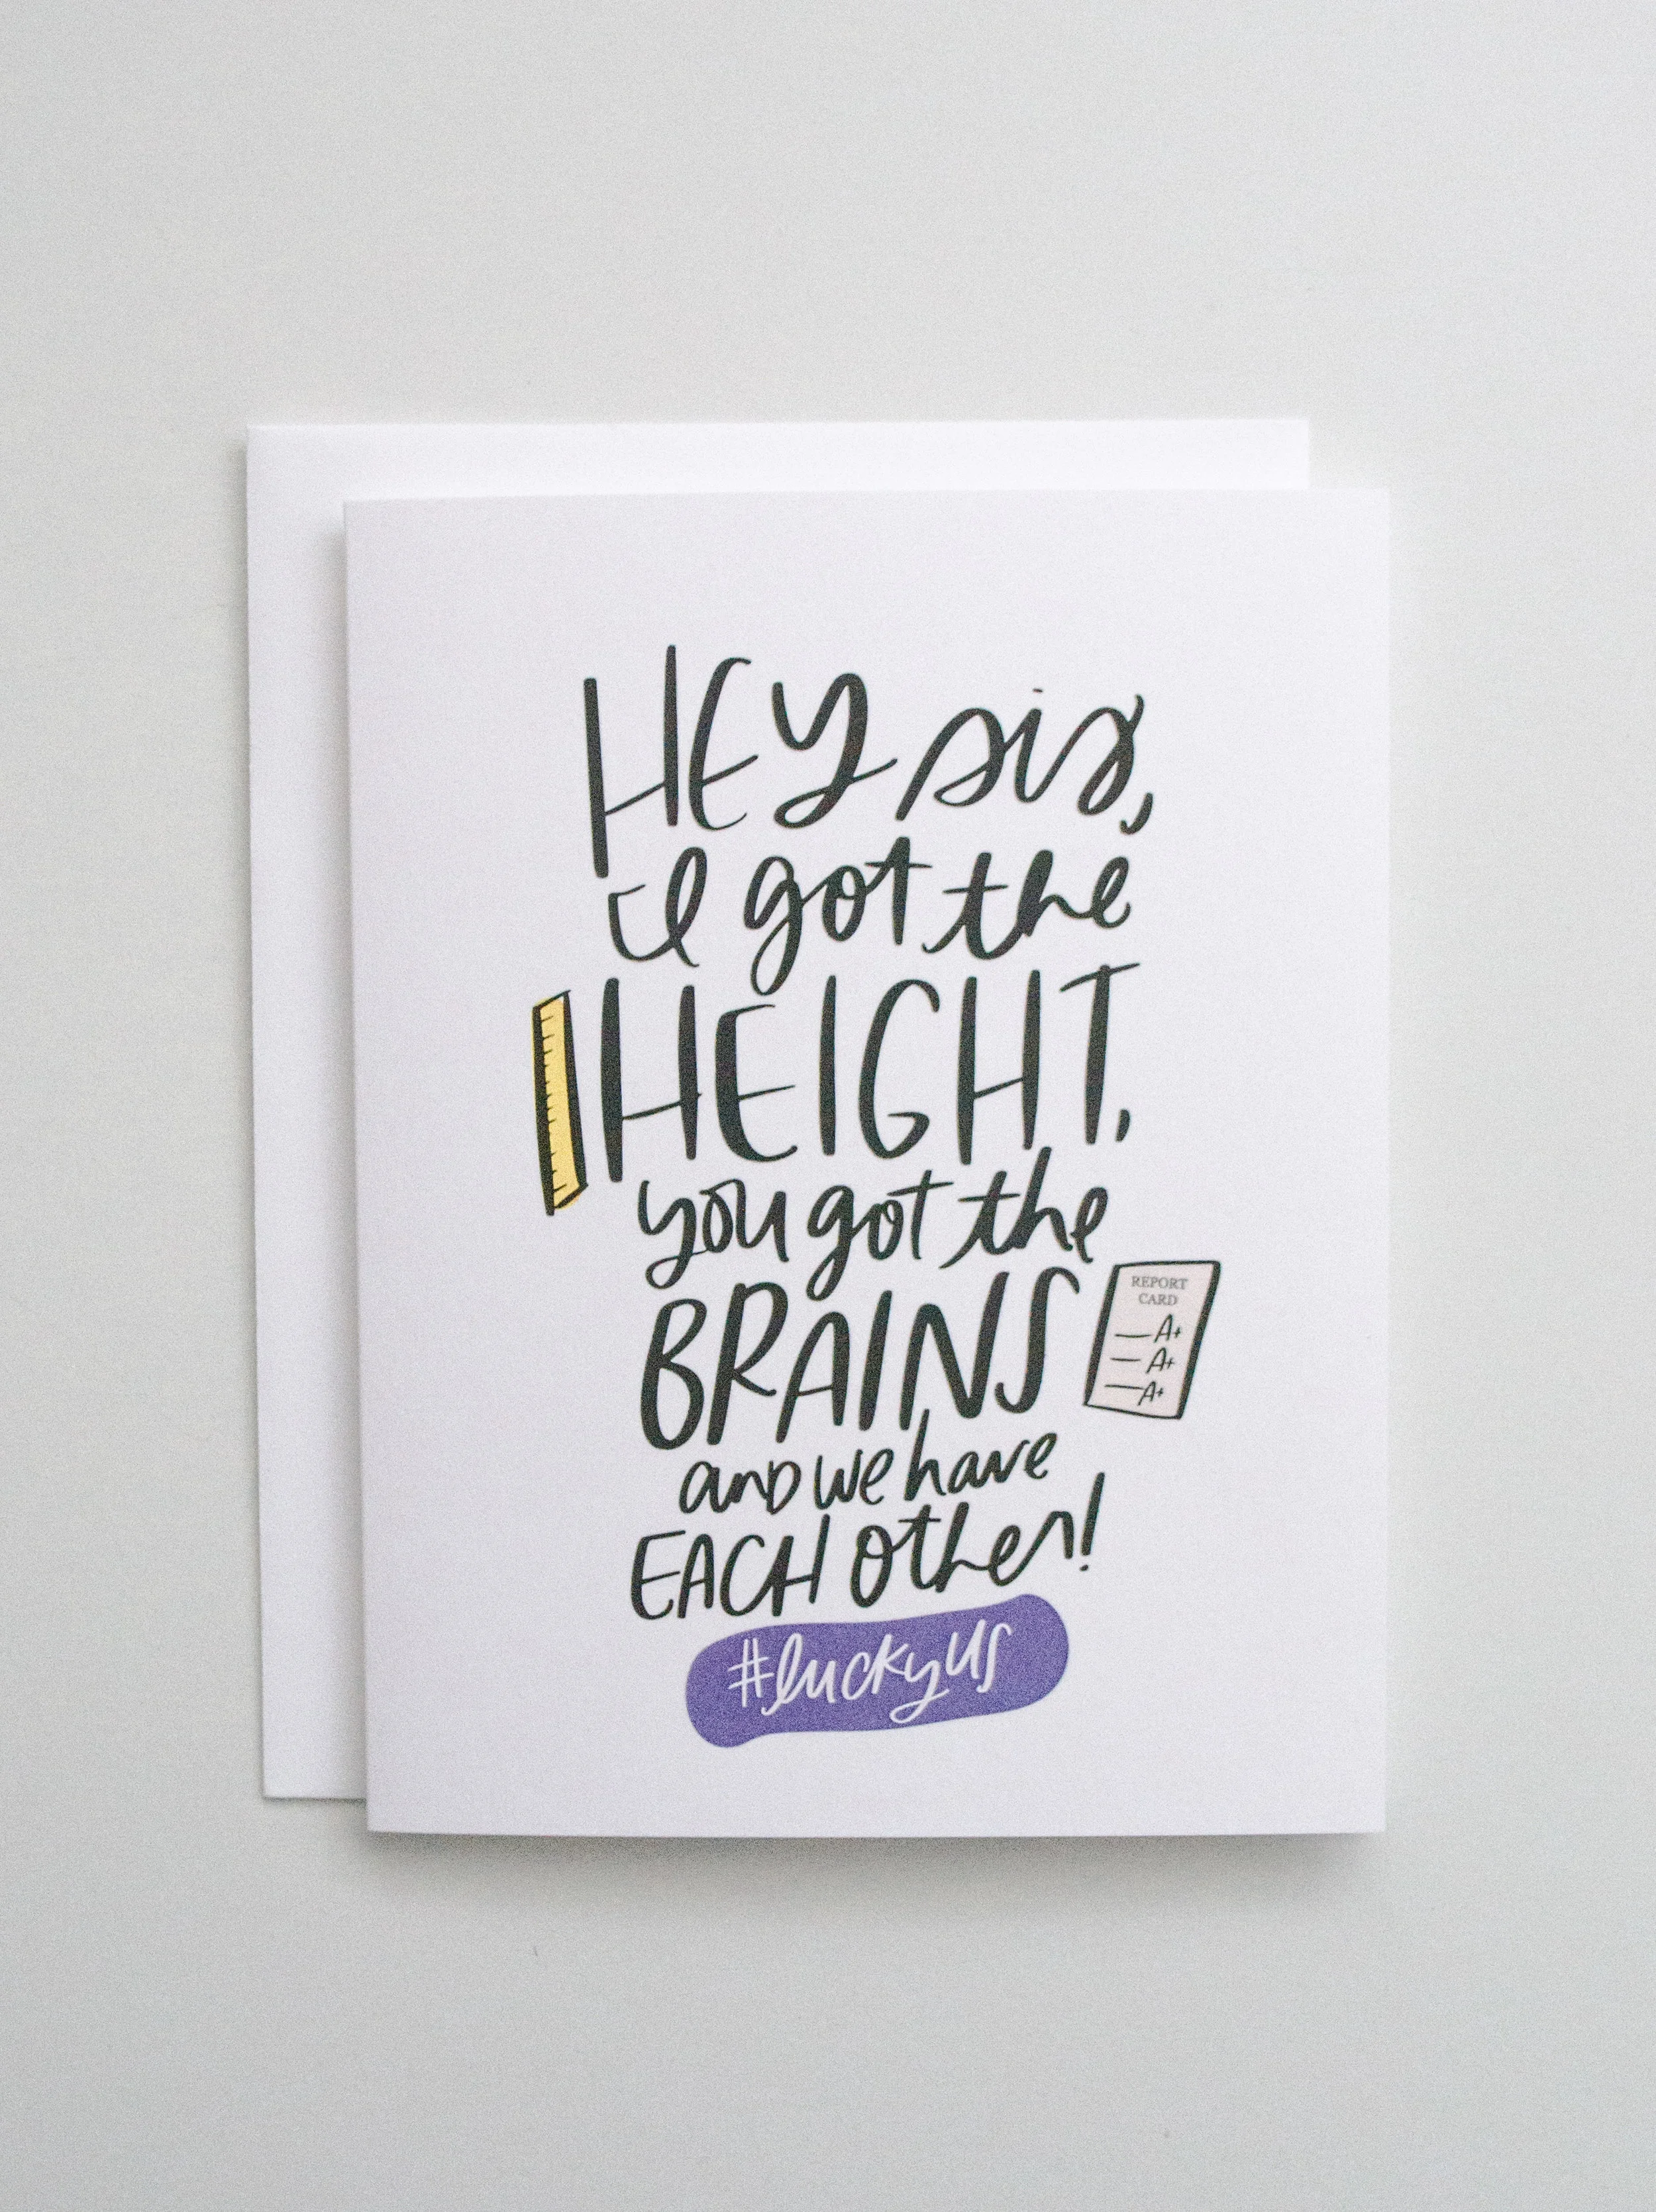 HEY sis,
I got the
HEIGHT,
you got the
BRAINS
REPORT
CARD
A+
A+
A+
and we have
EACH other!
#luckyus